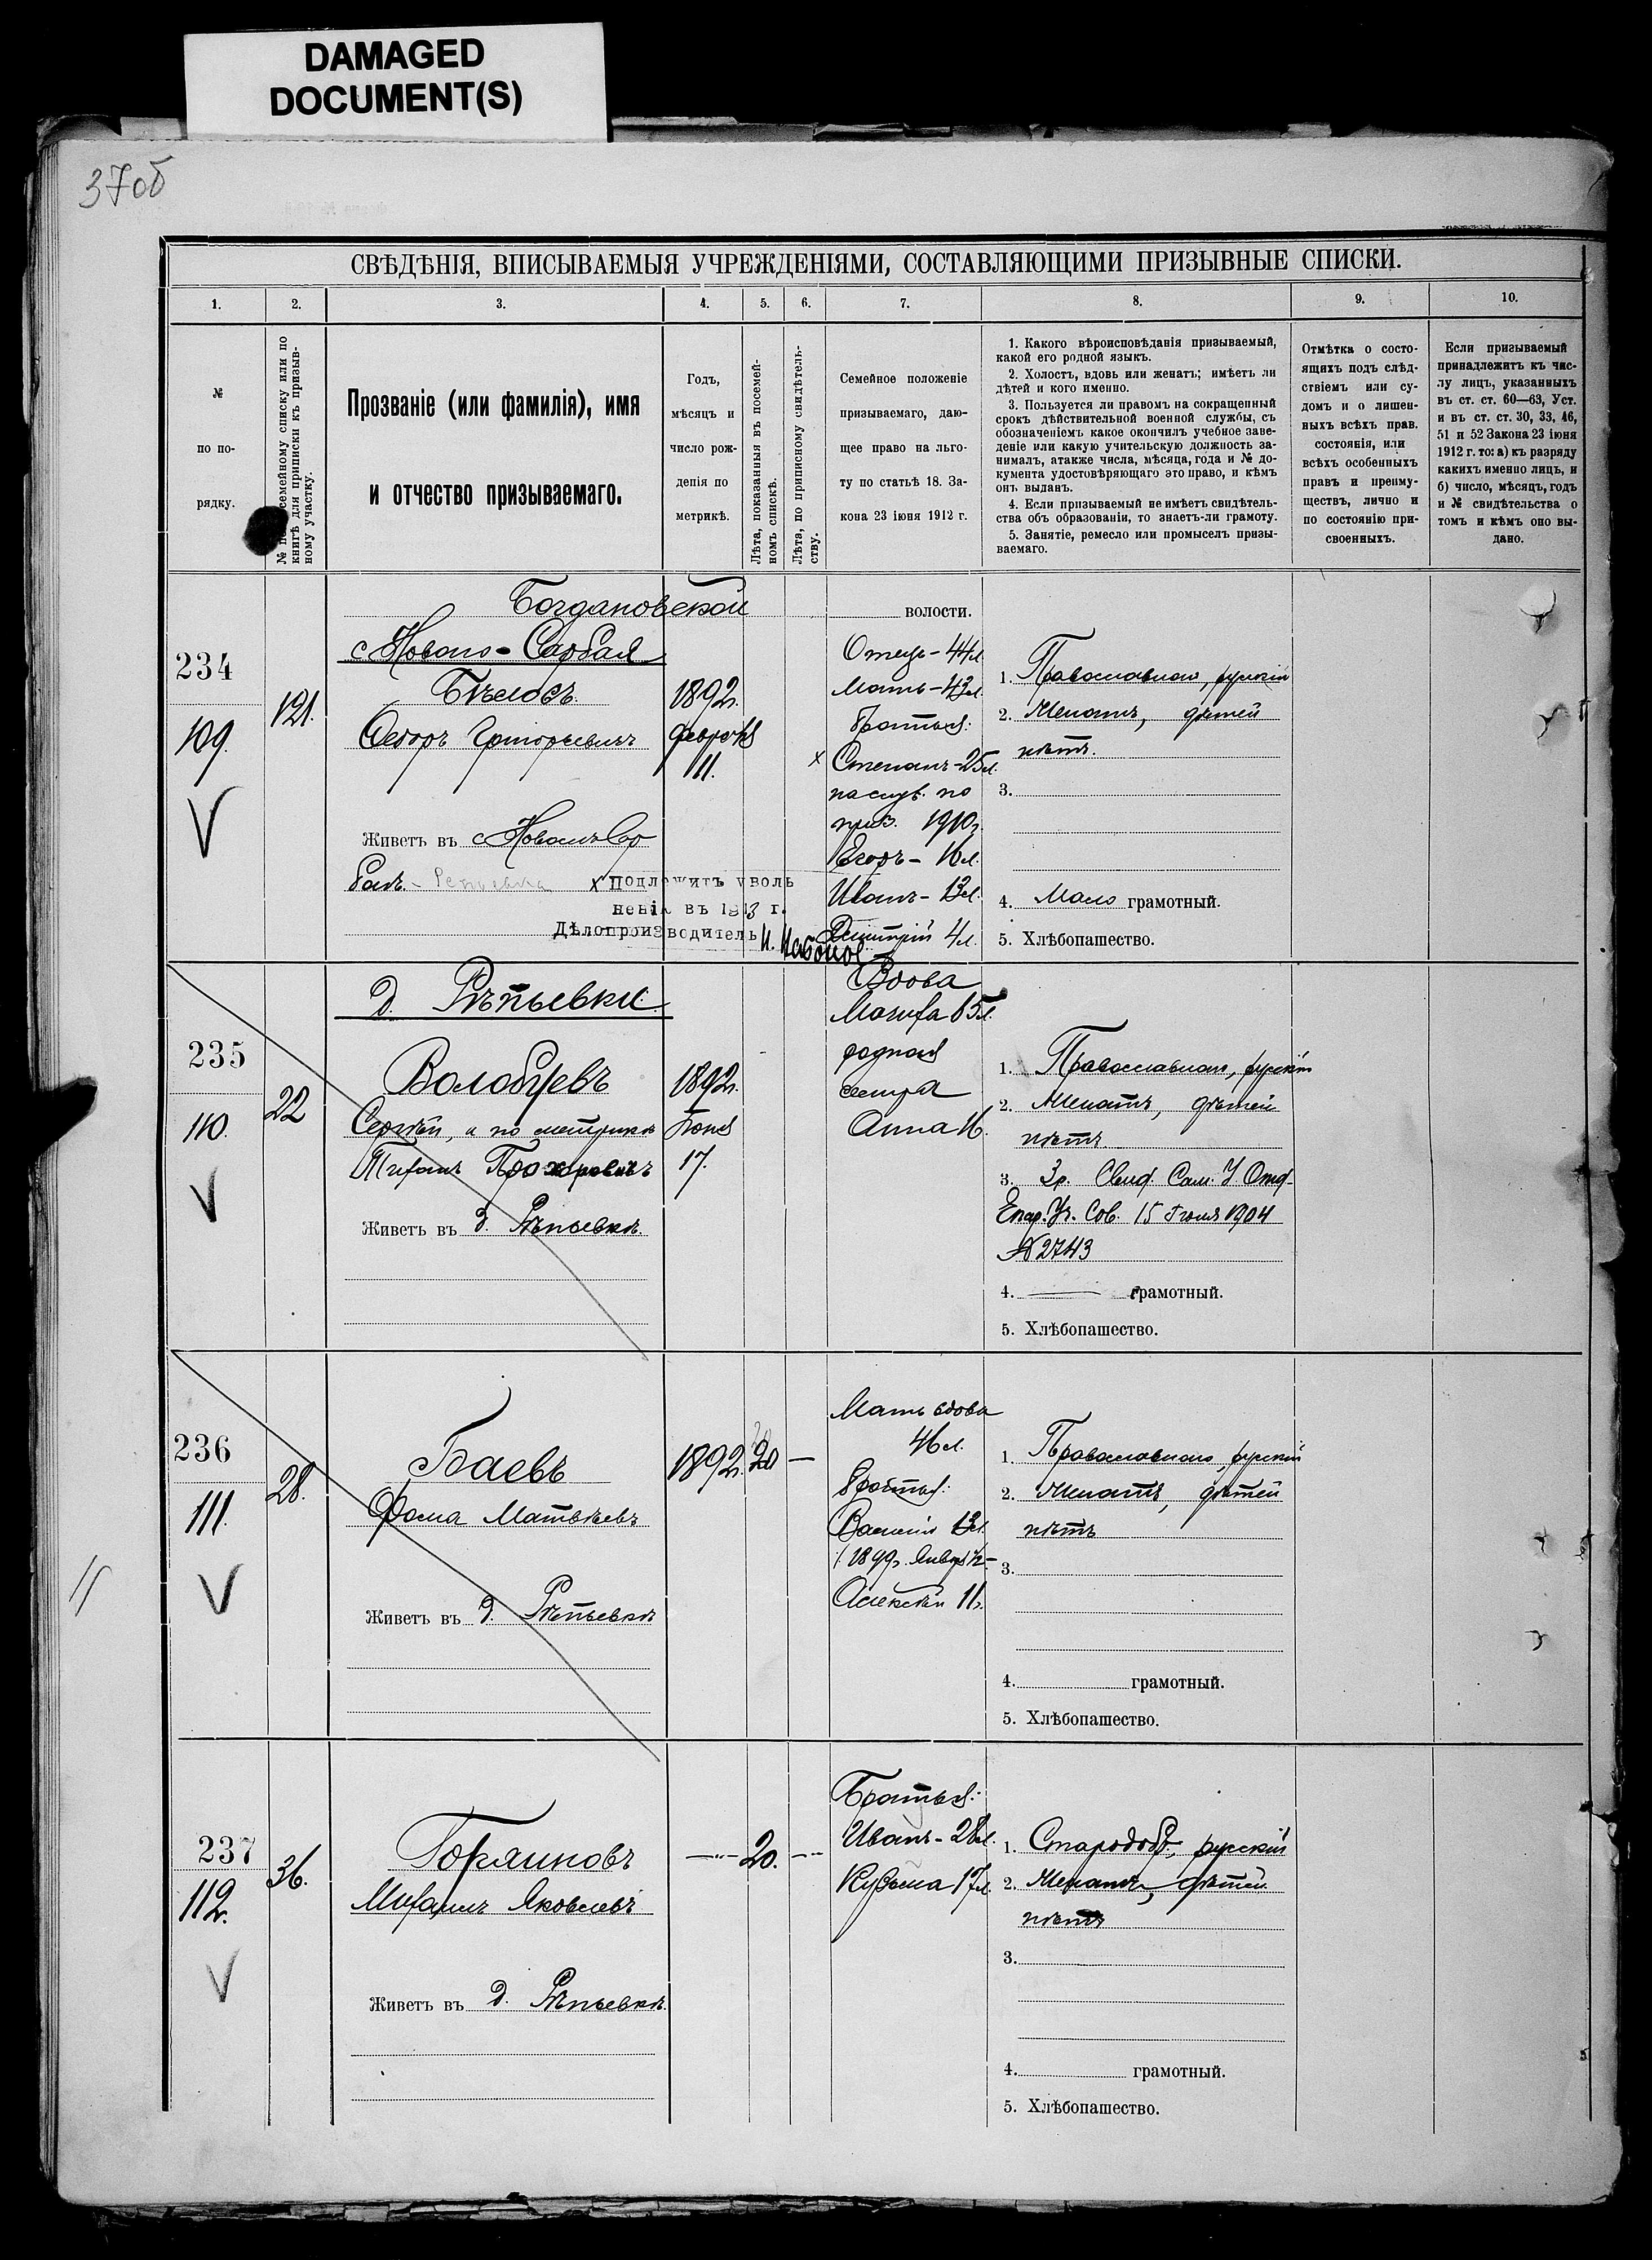 DAMAGED
DOCUMENT(S)
37об
СВѢДѢНІЯ, ВПИСЫВАЕМЫЯ УЧРЕЖДЕНІЯМИ, СОСТАВЛЯЮЩИМИ ПРИЗЫВНЫЕ СПИСКИ.
1.
2.
3.
4.
5.
6.
7.
8.
9.
10.
№
по по-
рядку.
семейному списку или по
книгѣ для приписки къ призыв-
ному участку.
Прозваніе (или фамилія), имя
и отчество призываемаго.
Годъ,
мѣсяцъ и
число рож-
денія по
метрикѣ.
Лѣта, показанныя въ посемей-
номъ спискѣ.
Лѣта, по приписному свидѣтель-
ству.
Семейное положеніе
призываемаго, даю-
щее право на льго-
ту по статьѣ 18. За-
кона 23 іюня 1912 г.
1. Какого вѣроисповѣданія призываемый,
какой его родной языкъ.
2. Холостъ, вдовъ или женатъ; имѣетъ ли
дѣтей и кого именно.
3. Пользуется ли правомъ на сокращенный
срокъ дѣйствительной военной службы, съ
обозначеніемъ какое окончилъ учебное заве-
деніе или какую учительскую должность за-
нималъ, атакже числа, мѣсяца, года и № до-
кумента удостовѣряющаго это право, и кѣмъ
онъ выданъ.
4. Если призываемый не имѣетъ свидѣтель-
ства объ образованіи, то знаетъ-ли грамоту.
5. Занятіе, ремесло или промыселъ призы-
ваемаго.
Отмѣтка о состо-
ящихъ подъ слѣд-
ствіемъ или су-
домъ и о лишен-
ныхъ всѣхъ прав.
состоянія, или
всѣхъ особенныхъ
правъ и преиму-
ществъ, лично и
по состоянію при-
своенныхъ.
Если призываемый
принадлежитъ къ чис-
лу лицъ, указанныхъ
въ ст. ст. 60—63, Уст.
и въ ст. ст. 30, 33, 46,
51 и 52 Закона 23 іюня
1912 г. то: а) къ разряду
какихъ именно лицъ, и
б) число, мѣсяцъ, годъ
и № свидѣтельства о
томъ и кѣмъ оно вы-
дано.
Богдановской волости.
с Новаго-Сарбая
234
109.
121.
Бѣловъ
Ѳедоръ Григорьевичъ
Живетъ въ с Новомъ Сар
баѣ - Репьевка
1892.
февраля
11.
Отецъ - 44л.
Мать - 43л.
братья:
х Степанъ - 25л.
на служ. по
приз. 1910г.
Егоръ - 16л.
Иванъ - 13л.
Дмитрій 4л.
х подлежитъ уволь
ненію въ 1913 г.
Дѣлопроизводитель
1. Православнаго, русскій
2. Женатъ, дѣтей
нѣтъ.
3.
4. Мало грамотный.
5. Хлѣбопашество.
д. Рѣпьевки
235
110.
22
Волобуевъ
Сергѣй, а по метрикѣ
Тихонъ Прохоровичъ
Живетъ въ д. Рѣпьевкѣ.
1892г.
Іюня
17.
Вдова
85л.
родная
сестра
Анна 16.
1. Православнаго, русскій
2. Женатъ, дѣтей
нѣтъ
3. 3р. Свид. Сам. У Отд.
Епар. Уч. Сов. 15 Іюля 1904
№ 2743
4. грамотный.
5. Хлѣбопашество.
236
111.
28.
Баевъ
Ѳома Матвѣевъ
Живетъ въ д. Рѣпьевкѣ
1892г.
20
—
Мать вдова
46л.
братья:
Василій 13л.
1899г. Января 12 -
Алексѣй 11г.
1. Православнаго, русскій
2. Женатъ, дѣтей
нѣтъ
3.
4. грамотный.
5. Хлѣбопашество.
11
237
112.
36.
Горяиновъ
Михаилъ Яковлевъ
Живетъ въ д. Рѣпьевкѣ.
—"—
20.
—"—
Братья:
Иванъ - 28л.
Кузьма 17л.
1. Старообр., русскій
2. Женатъ, дѣтей
нѣтъ
3.
4. грамотный.
5. Хлѣбопашество.